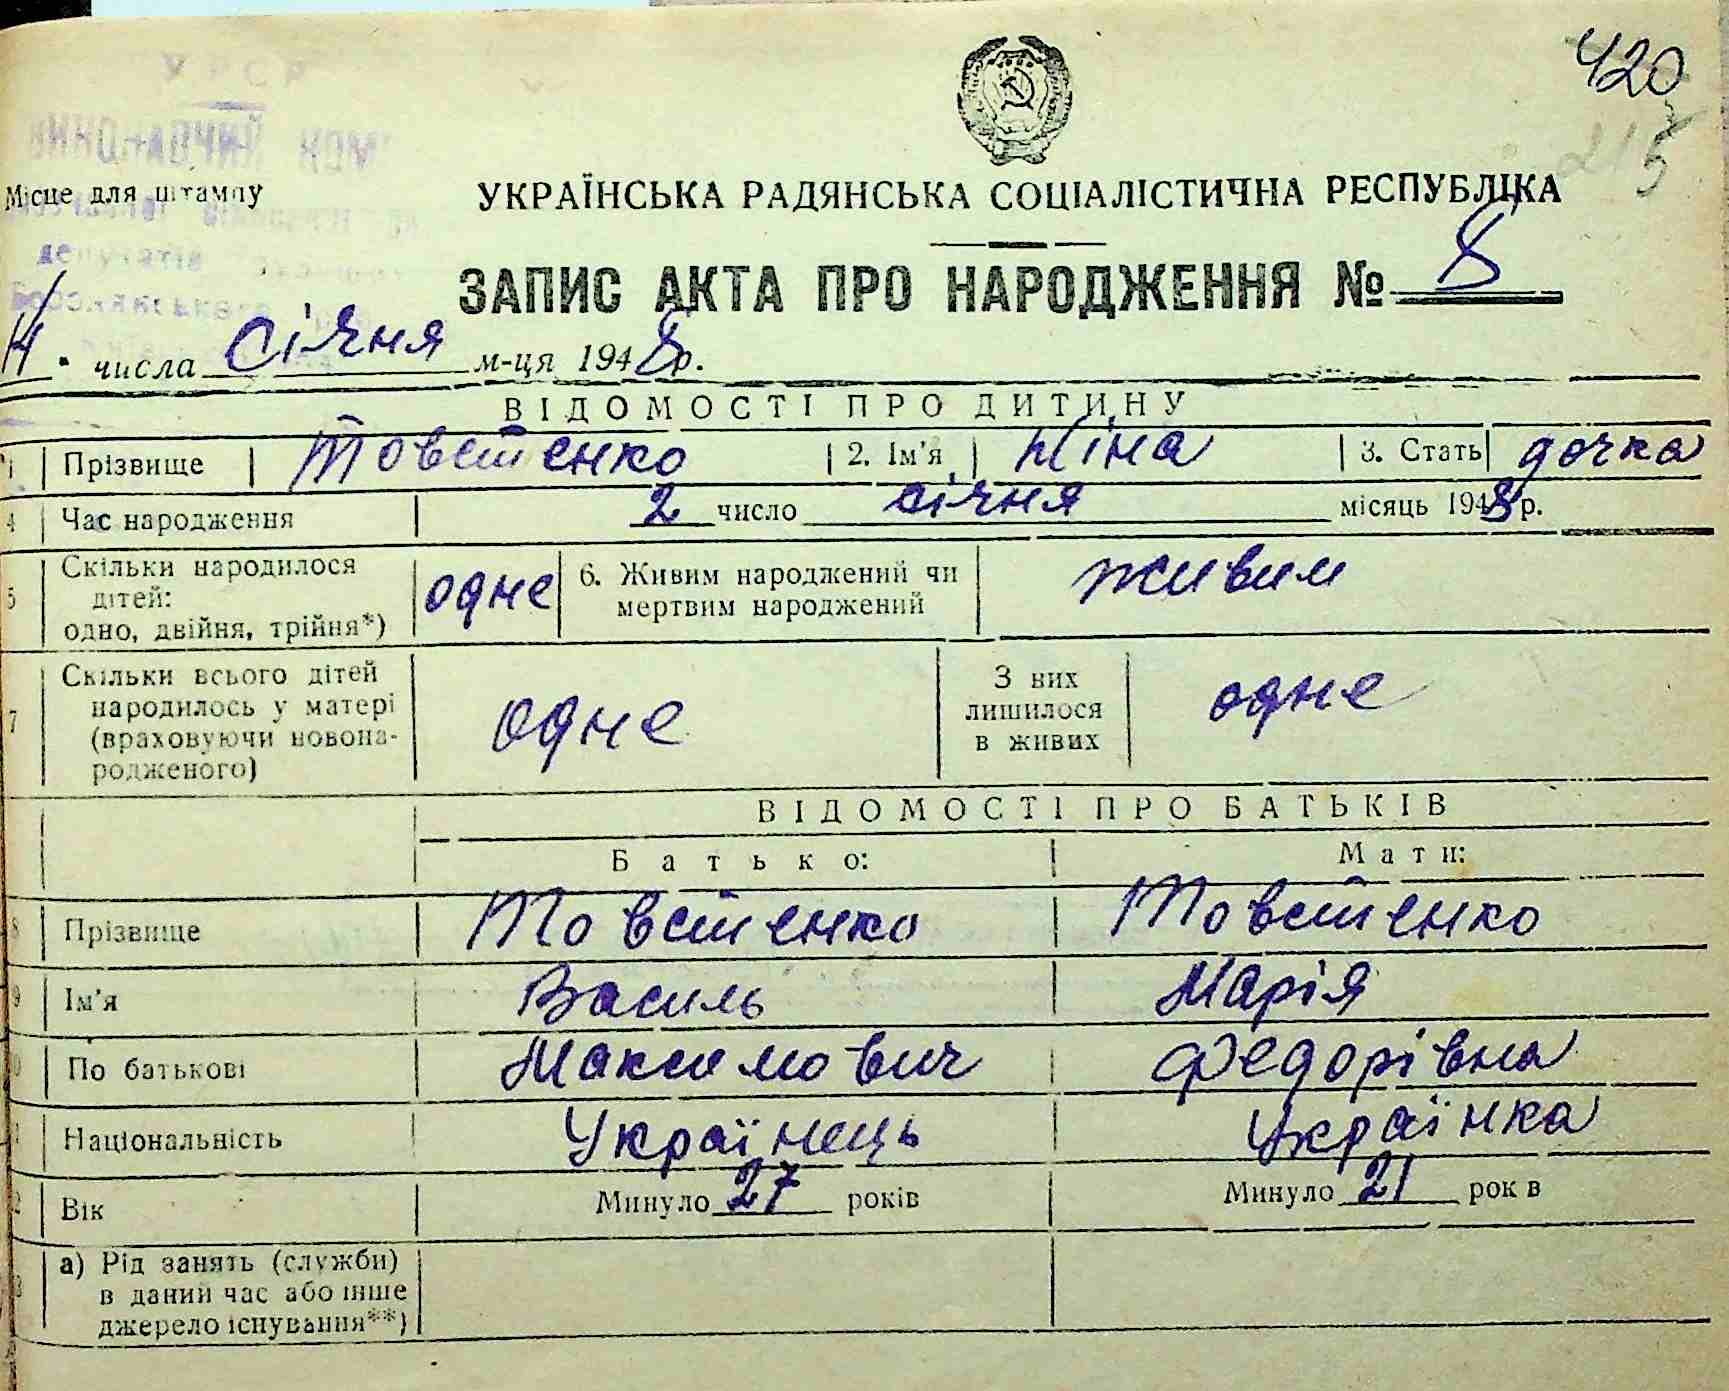 420
215
УРСР
Місце для штампу
УКРАЇНСЬКА РАДЯНСЬКА СОЦІАЛІСТИЧНА РЕСПУБЛІКА
депутатів
ЗАПИС АКТА ПРО НАРОДЖЕННЯ № 8
4 числа січня м-ця 1948 р.
ВІДОМОСТІ ПРО ДИТИНУ
1 Прізвище Товстенко 2. Ім'я Ніна 3. Стать дочка
4 Час народження 2 число січня місяць 1948 р.
5 Скільки народилося дітей: одно, двійня, трійня*) одне 6. Живим народжений чи мертвим народжений живим
7 Скільки всього дітей народилось у матері (враховуючи новона-родженого) одне З них лишилося в живих одне
ВІДОМОСТІ ПРО БАТЬКІВ
Батько: Мати:
8 Прізвище Товстенко Товстенко
9 Ім'я Василь Марія
0 По батькові Максимович Федорівна
1 Національність Українець Українка
2 Вік Минуло 27 років Минуло 21 рок в
3 а) Рід занять (служби) в даний час або інше джерело існування**)